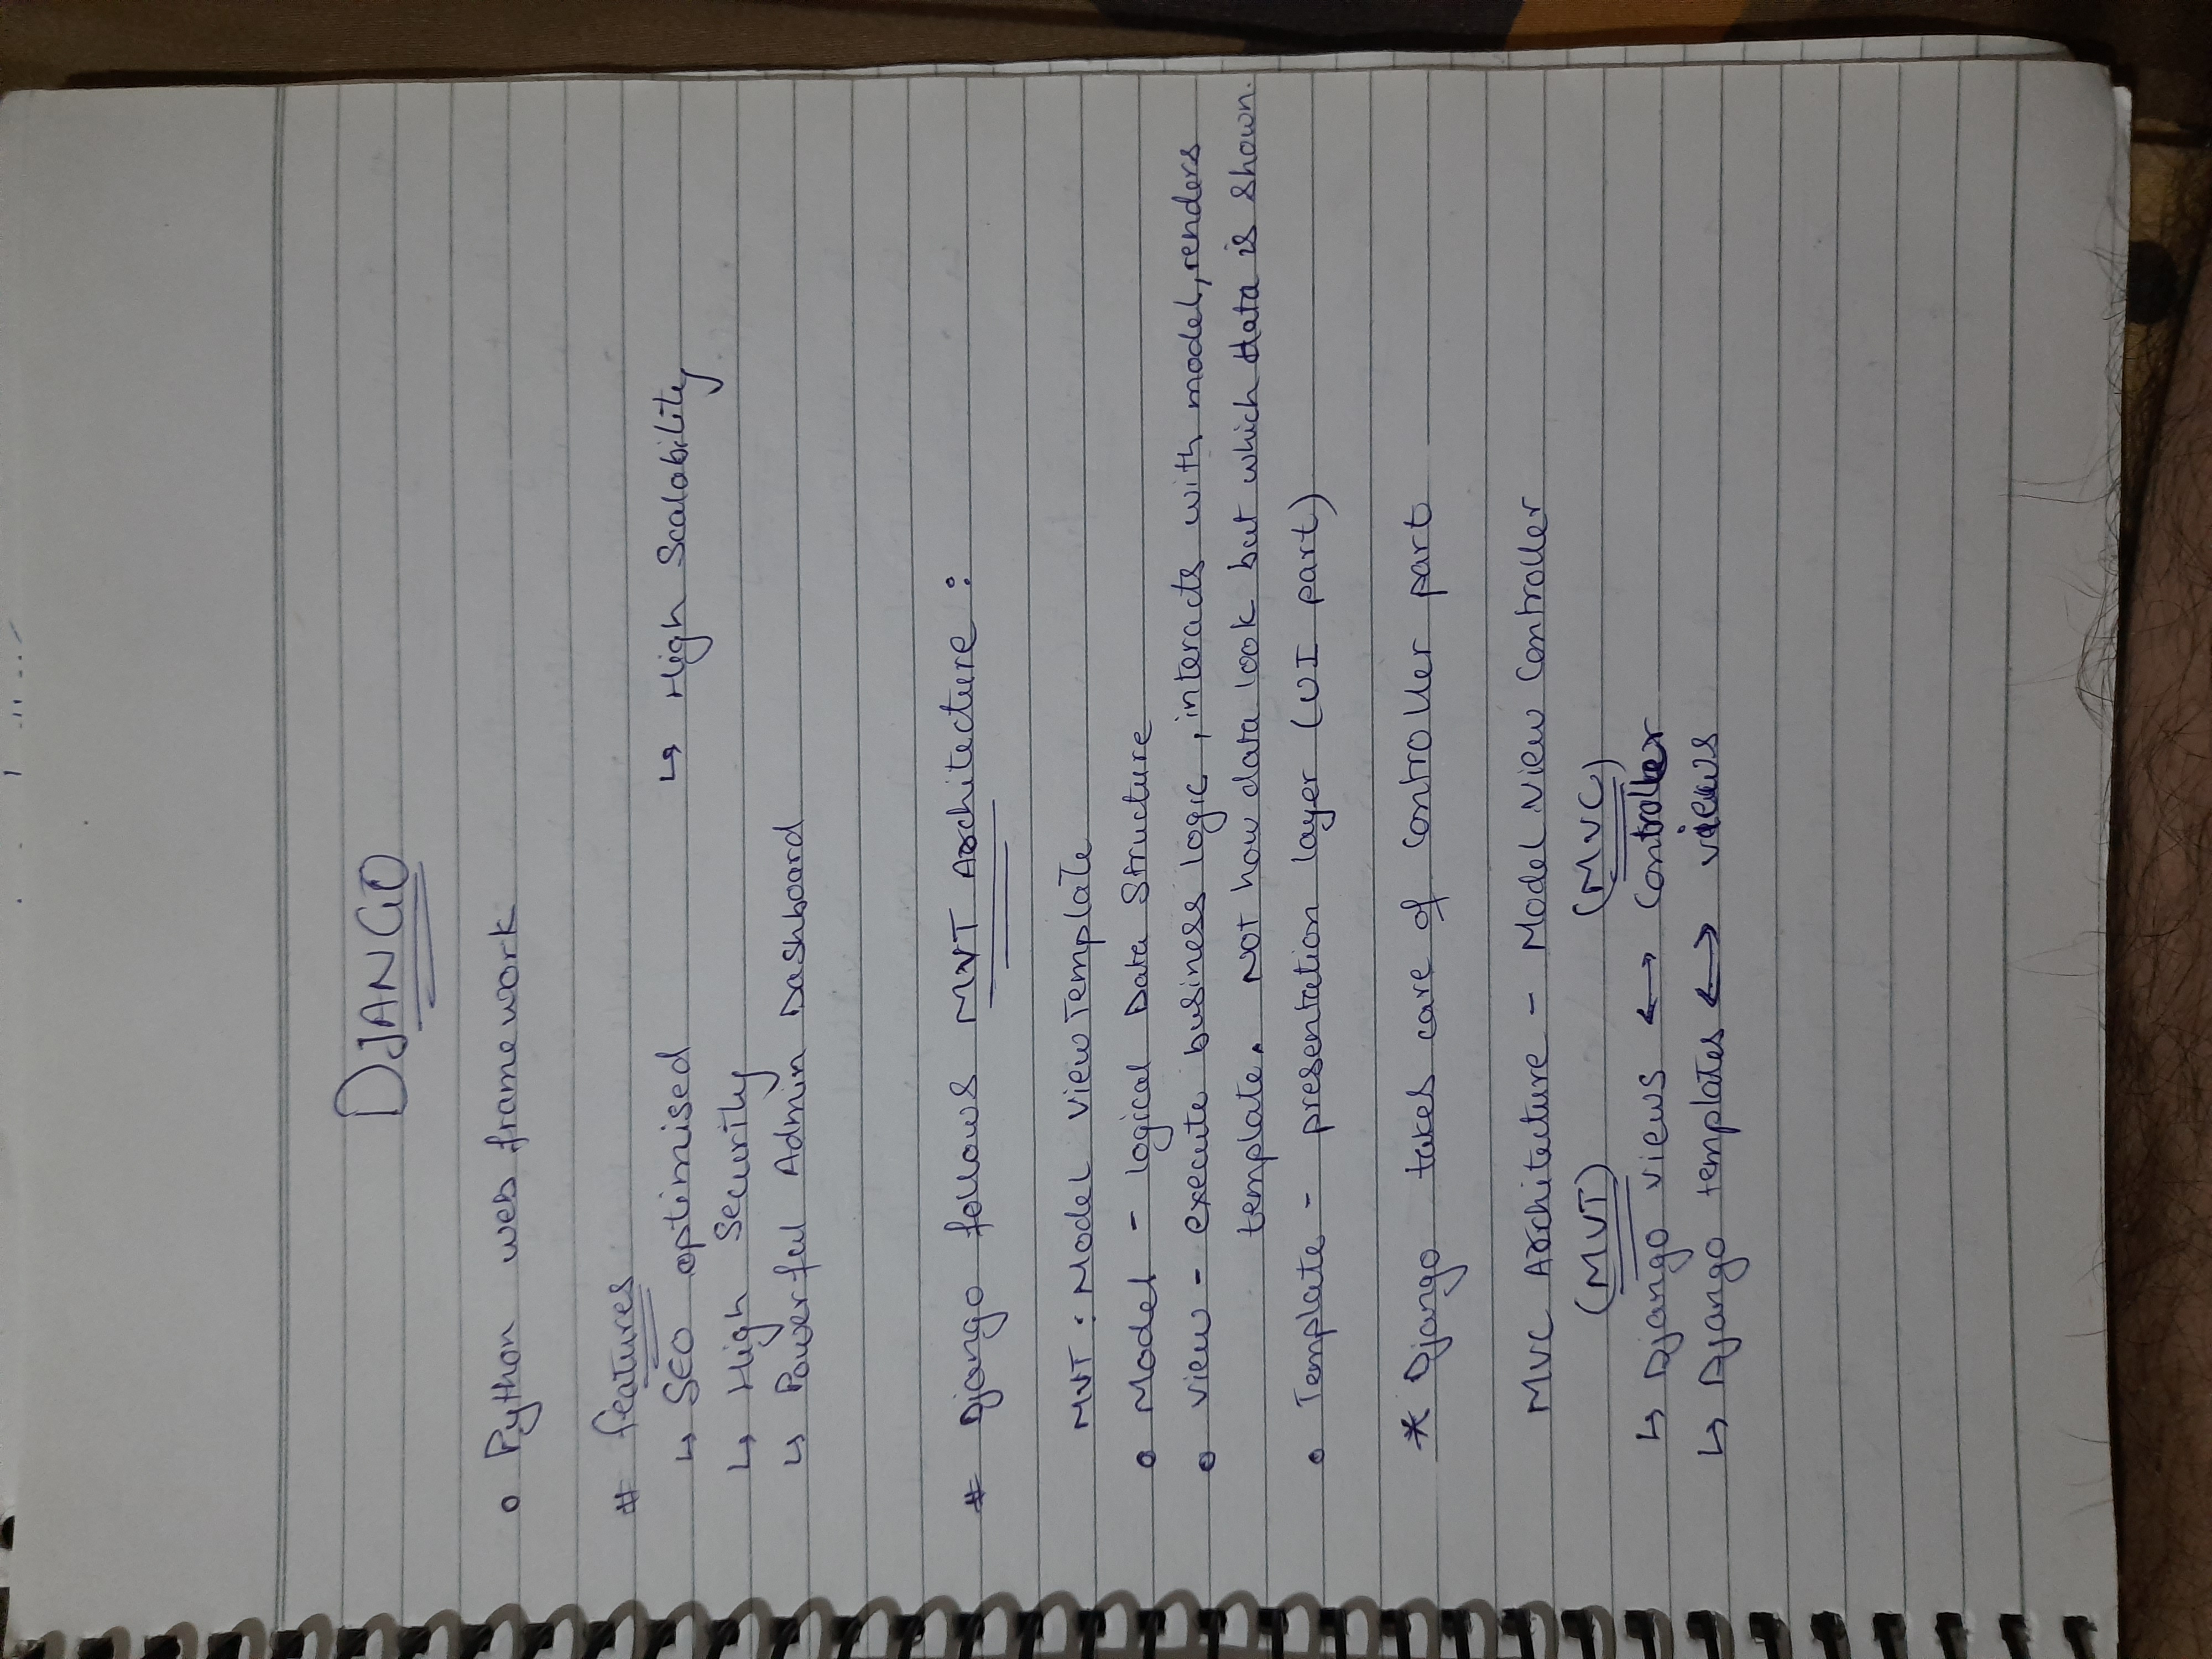 DJANGO
o Python web framework
# features
↳ SEO optimised ↳ High Scalability
↳ High Security
↳ Powerful Admin Dashboard
# Django follows MVT Architecture :
MVT : Model View Template
o Model - logical Data Structure
o view - execute business logic , interacts with model, renders
template. NOT how data look but which data is shown.
o Template - presentation layer (UI part)
* Django takes care of controller part
MVC Architecture - Model View Controller
(MVT) (MVC)
↳ Django views ↔ Controller
↳ Django templates ↔ views